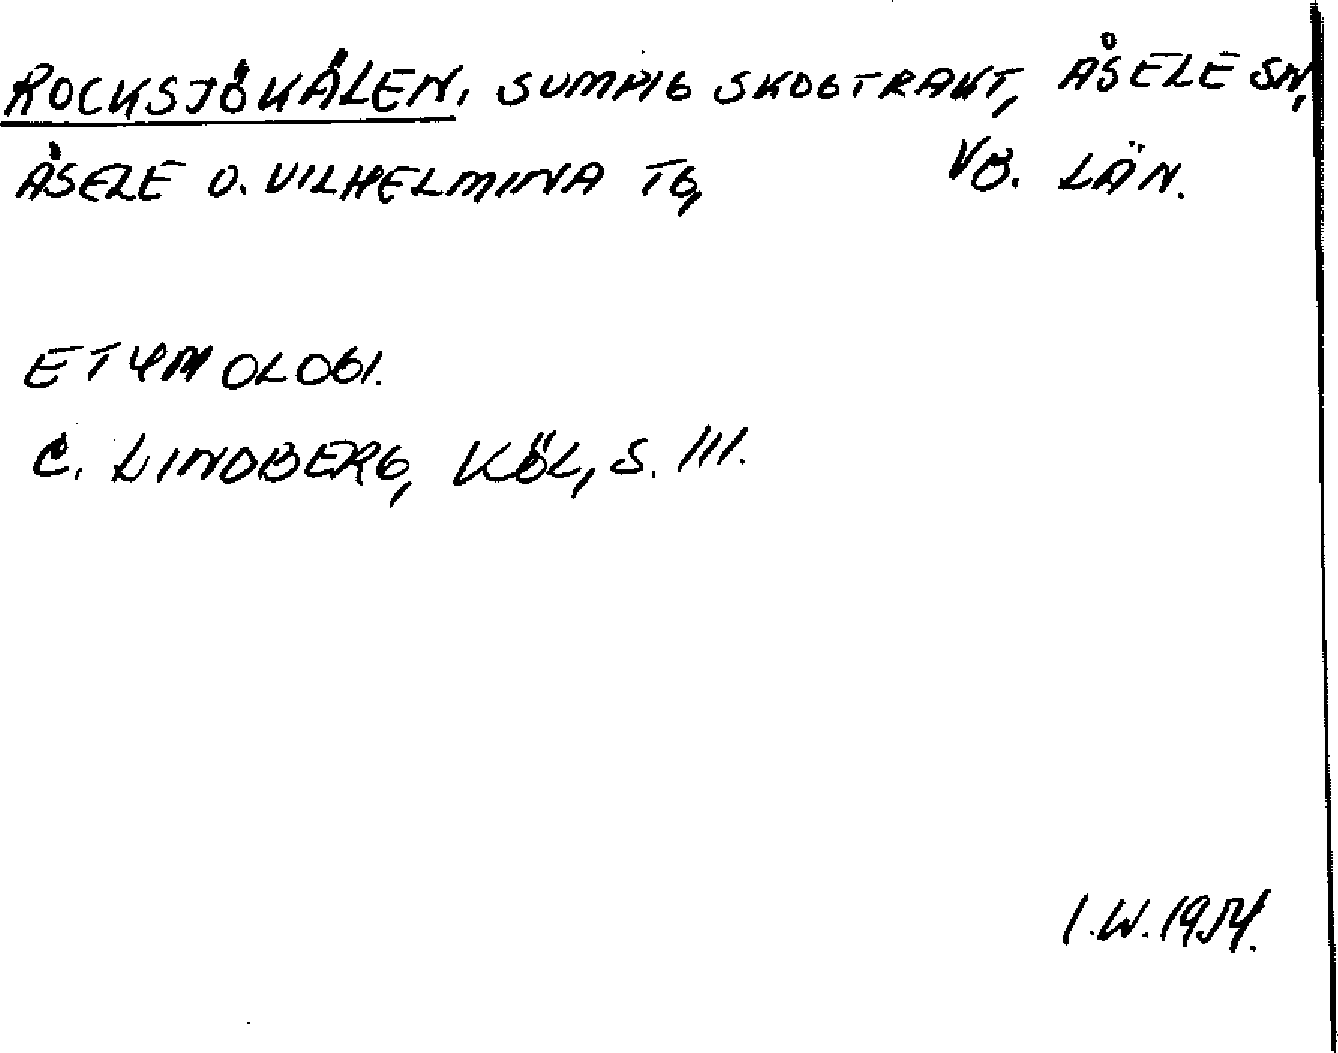 ROCKSJÖKÅLEN, SUMPIG SKOGTRAKT, ÅSELE SN,
ÅSELE O. VILHELMINA TG, VB. LÄN.
ETYMOLOGI.
C. LINDBERG, KÖL, S. 111.
I.W. 1954.